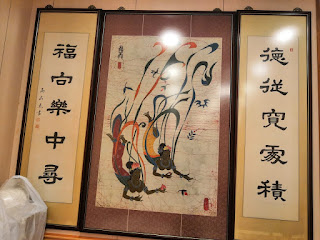 德從寬處積
福向樂中尋